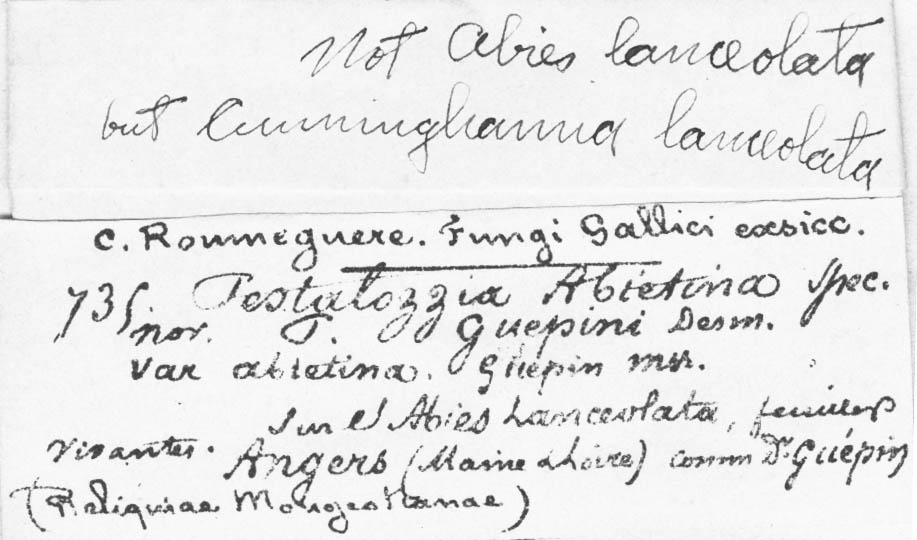 Not Abies lanceolata
but Cunninghamia lanceolata
C. Roumeguere. Fungi Gallici exsicc.
735. Pestalozzia Abietina Spec.
nov. P. Guepini Desm.
Var abietina. Guepin mss.
Sur l'Abies Lanceolata, feuilles
vivantes. Angers (Maine & Loire) comm Dr Guépin
(Reliquiae Mougeotianae)